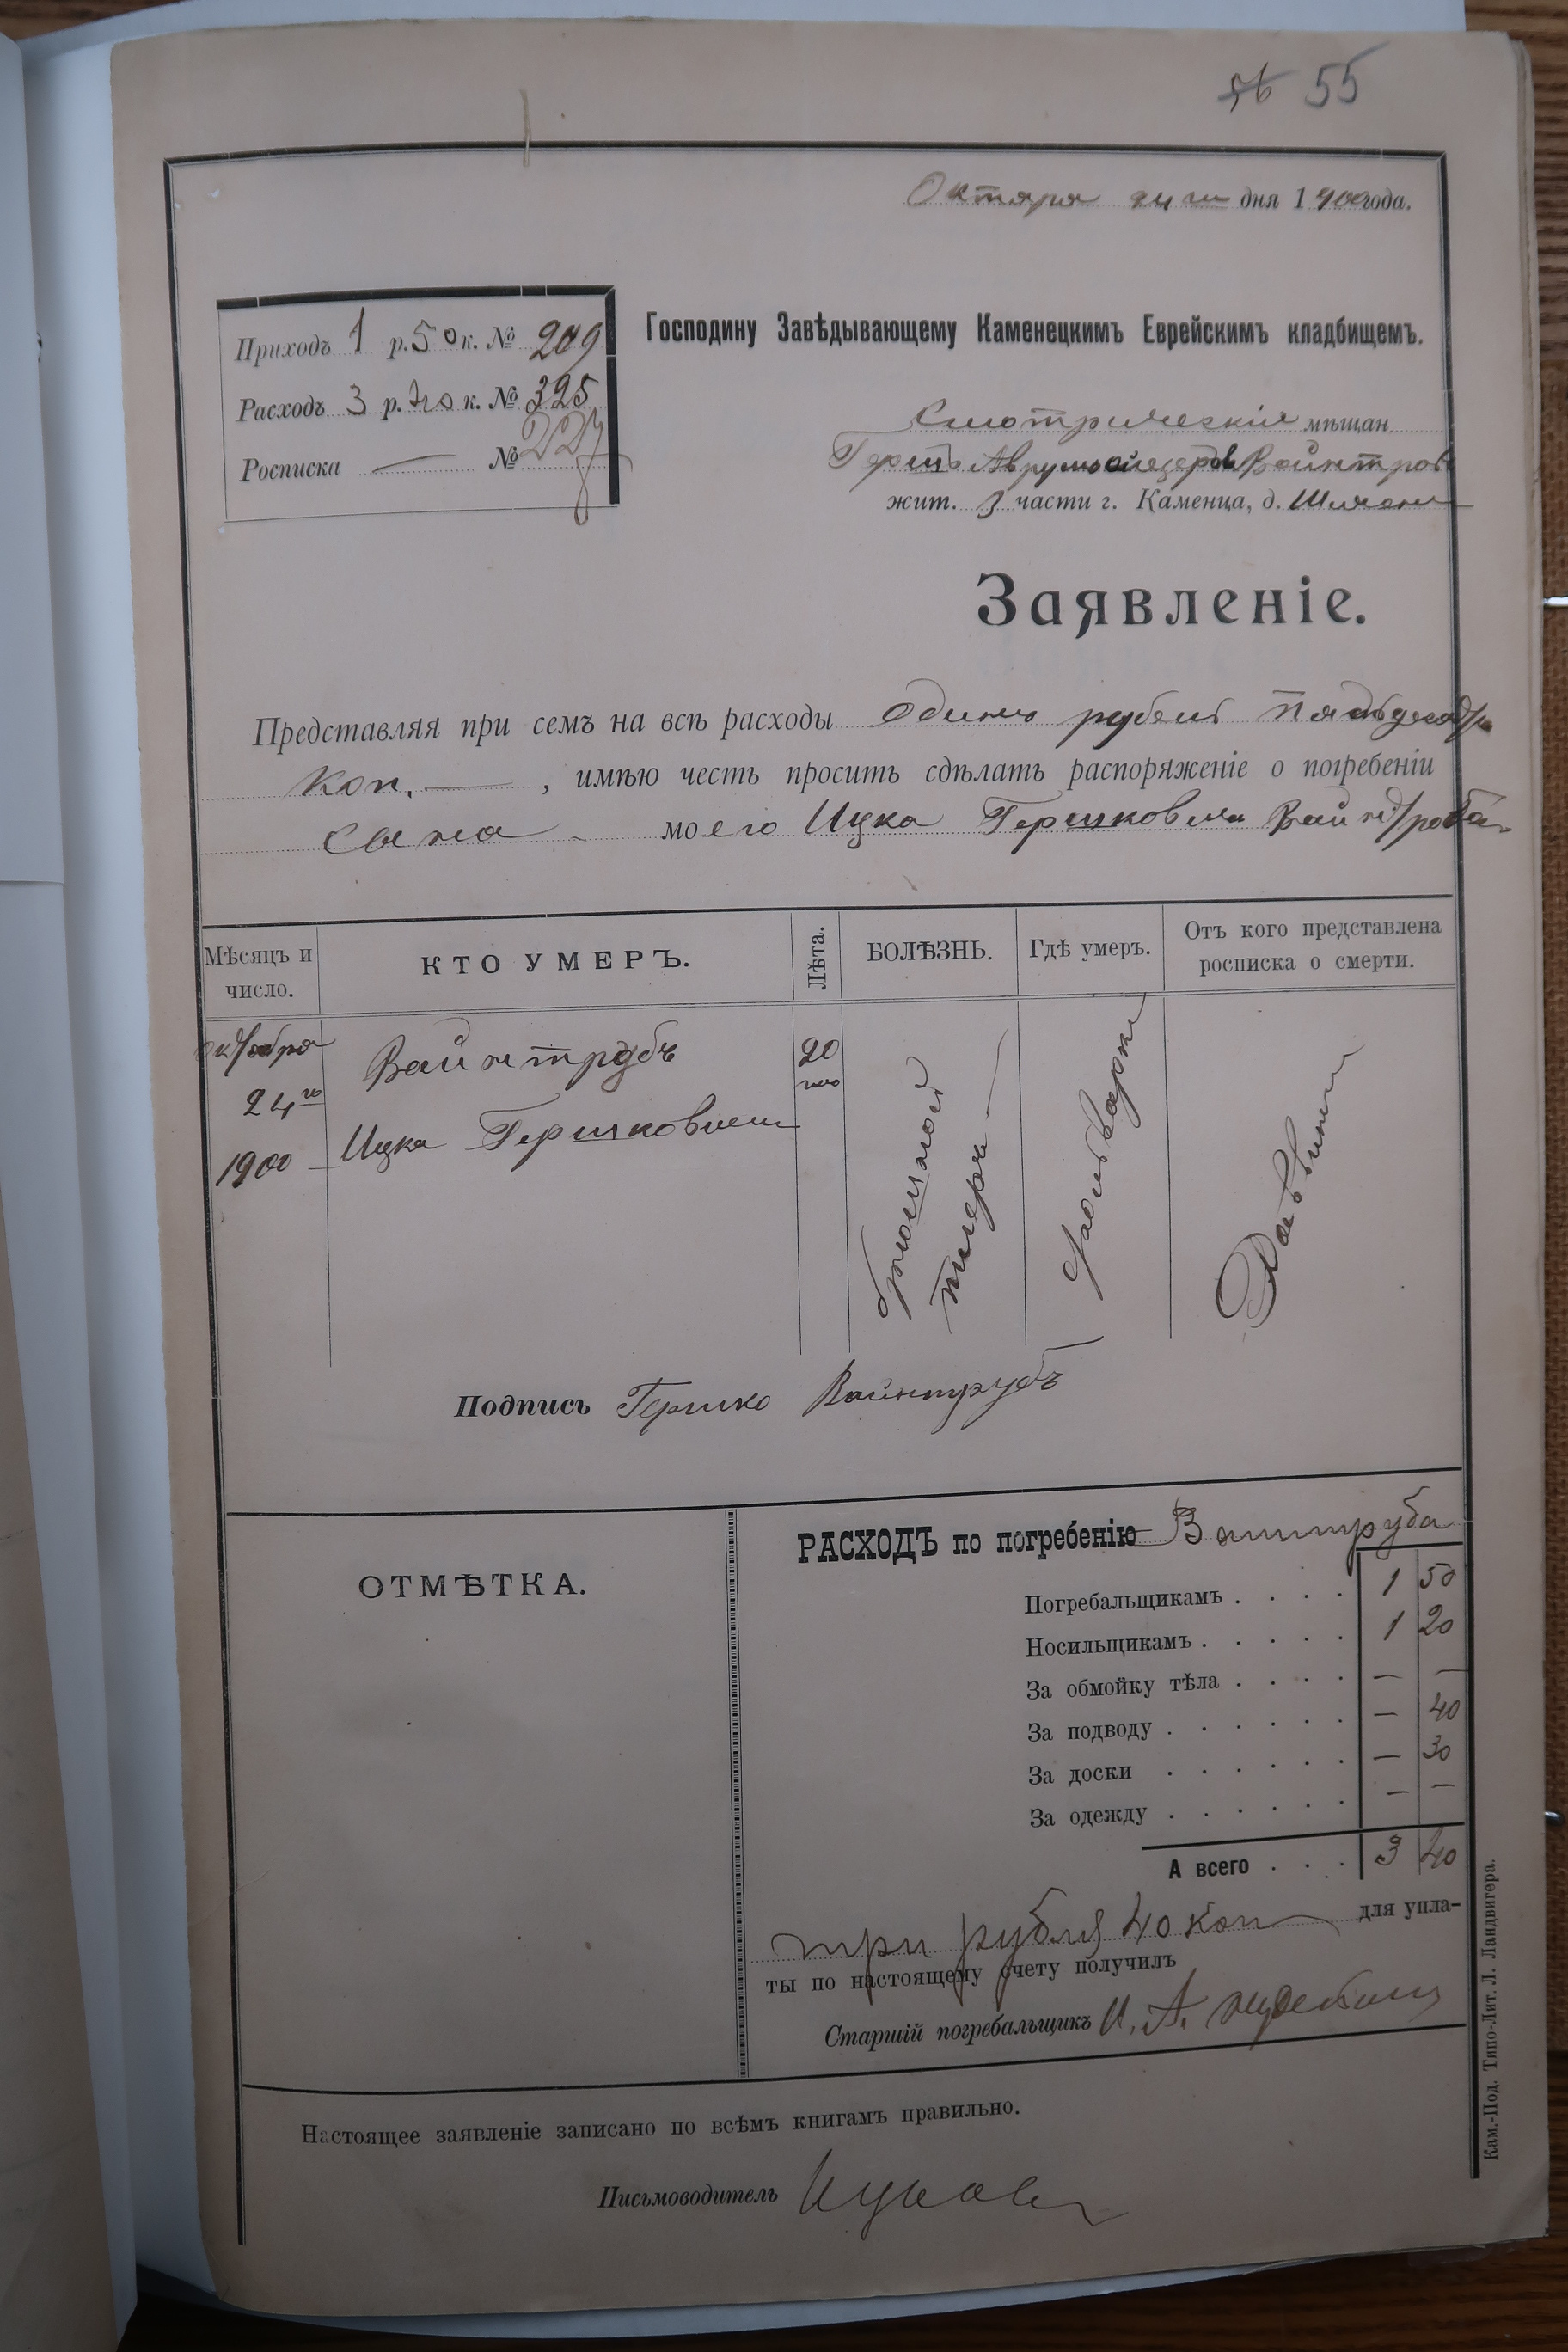 56 55
Октяря 24 го дня 1900 года.
Приходъ 1 р. 50 к. № 209
Расходъ 3 р. 40 к. № 325
Росписка — № 227
Господину Завѣдывающему Каменецкимъ Еврейскимъ кладбищемъ.
Смотрическій мѣщан
Гершъ Аврумъ Вайнтроб
жит. 3 части г. Каменца, д.
Заявленіе.
Представляя при семъ на всѣ расходы одинъ рубель
коп. —, имѣю честь просить сдѣлать распоряженіе о погребеніи
сына моего Ицка Гершковича Вайнтроба
Мѣсяцъ и число.
КТО УМЕРЪ.
Лѣта.
БОЛѢЗНЬ.
Гдѣ умеръ.
Отъ кого представлена росписка о смерти.
октобря
24 го
1900
Вайнтрубъ
Ицка Гершкович
20
брюшной
тифъ
Подпись Гершко Вайнтрубъ
ОТМѢТКА.
РАСХОДЪ по погребенію Ваинтруба
Погребальщикамъ . . . . 1 50
Носильщикамъ . . . . . 1 20
За обмойку тѣла . . . . — —
За подводу . . . . . . — 40
За доски . . . . . . — 30
За одежду . . . . . . — —
А всего . . . 3 40
три рубля 40 коп для упла-
ты по настоящему счету получилъ
Старшій погребальщикъ И. А.
Настоящее заявленіе записано по всѣмъ книгамъ правильно.
Письмоводитель
Кам.-Под. Типо-Лит. Л. Ландвигера.